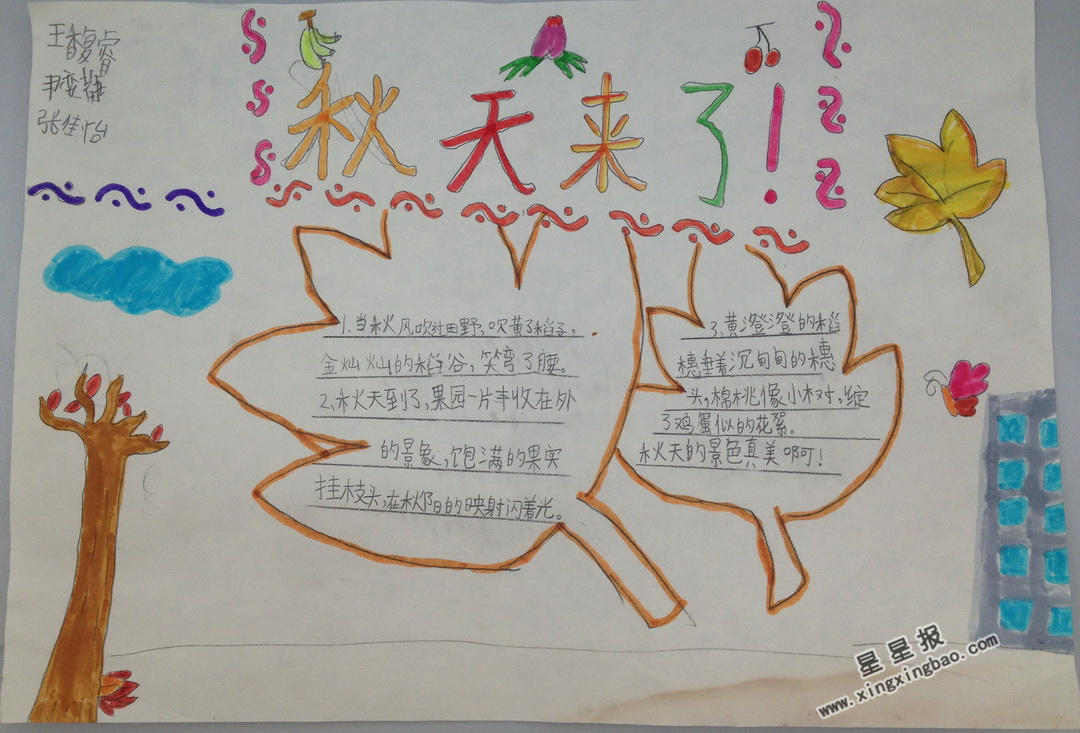 王馥睿
尹奕静
张佳怡
秋天来了！
1.当秋风吹过田野,吹黄了稻子。
金灿灿的稻谷，笑弯了腰。
2.秋天到了,果园一片丰收在外
的景象,饱满的果实
挂枝头,在秋阳的映射闪着光。
3.黄澄澄的稻
穗垂着沉甸甸的穗
头,棉桃像小树,绽
了鸡蛋似的花絮。
秋天的景色真美啊!
星星报
www.xingxingbao.com